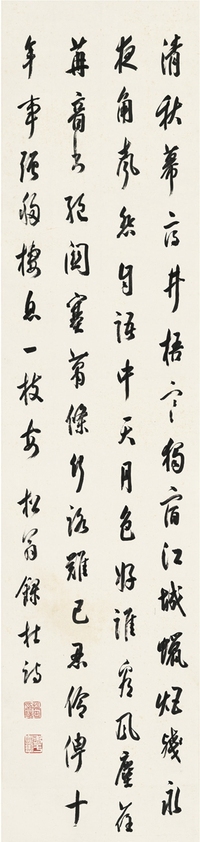 清秋幕府井梧寒獨宿江城蠟炬殘永
夜角聲悲自語中天月色好誰看風塵荏
苒音書絕關塞蕭條行路難已忍伶俜十
年事强移棲息一枝安 松翁錄杜詩